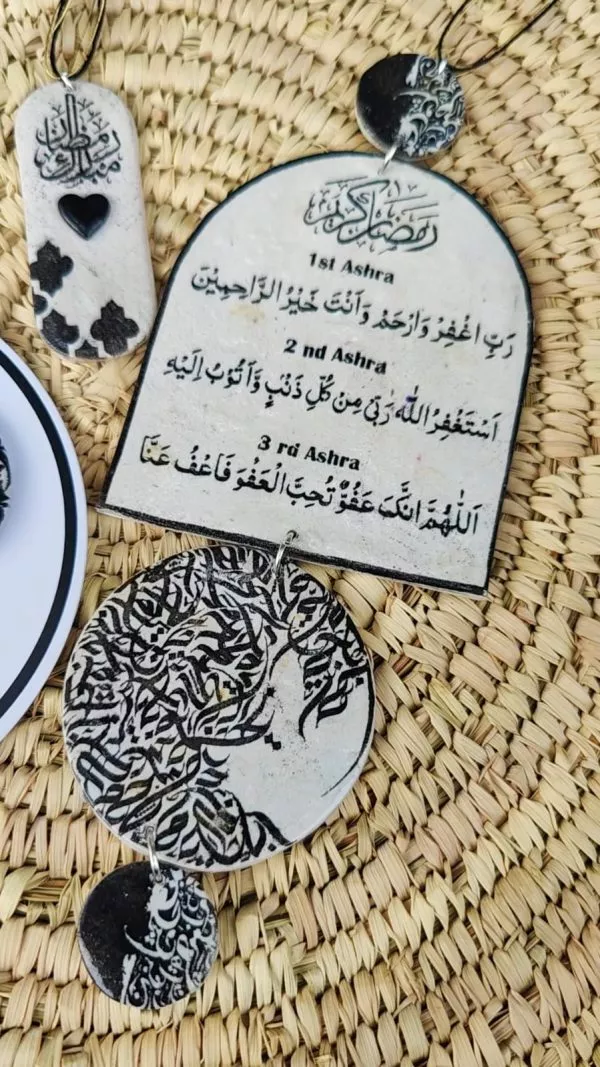 رمضان مبارك
رمضان كريم
1st Ashra
رَبِّ اغْفِرْ وَارْحَمْ وَاَنْتَ خَيْرُ الرَّاحِمِيْنَ
2 nd Ashra
اَسْتَغْفِرُ اللهَ رَبِّىْ مِنْ كُلِّ ذَنْبٍ وَّاَتُوْبُ اِلَيْهِ
3 rd Ashra
اَللّٰهُمَّ اِنَّكَ عَفُوٌّ تُحِبُّ الْعَفْوَ فَاعْفُ عَنَّا